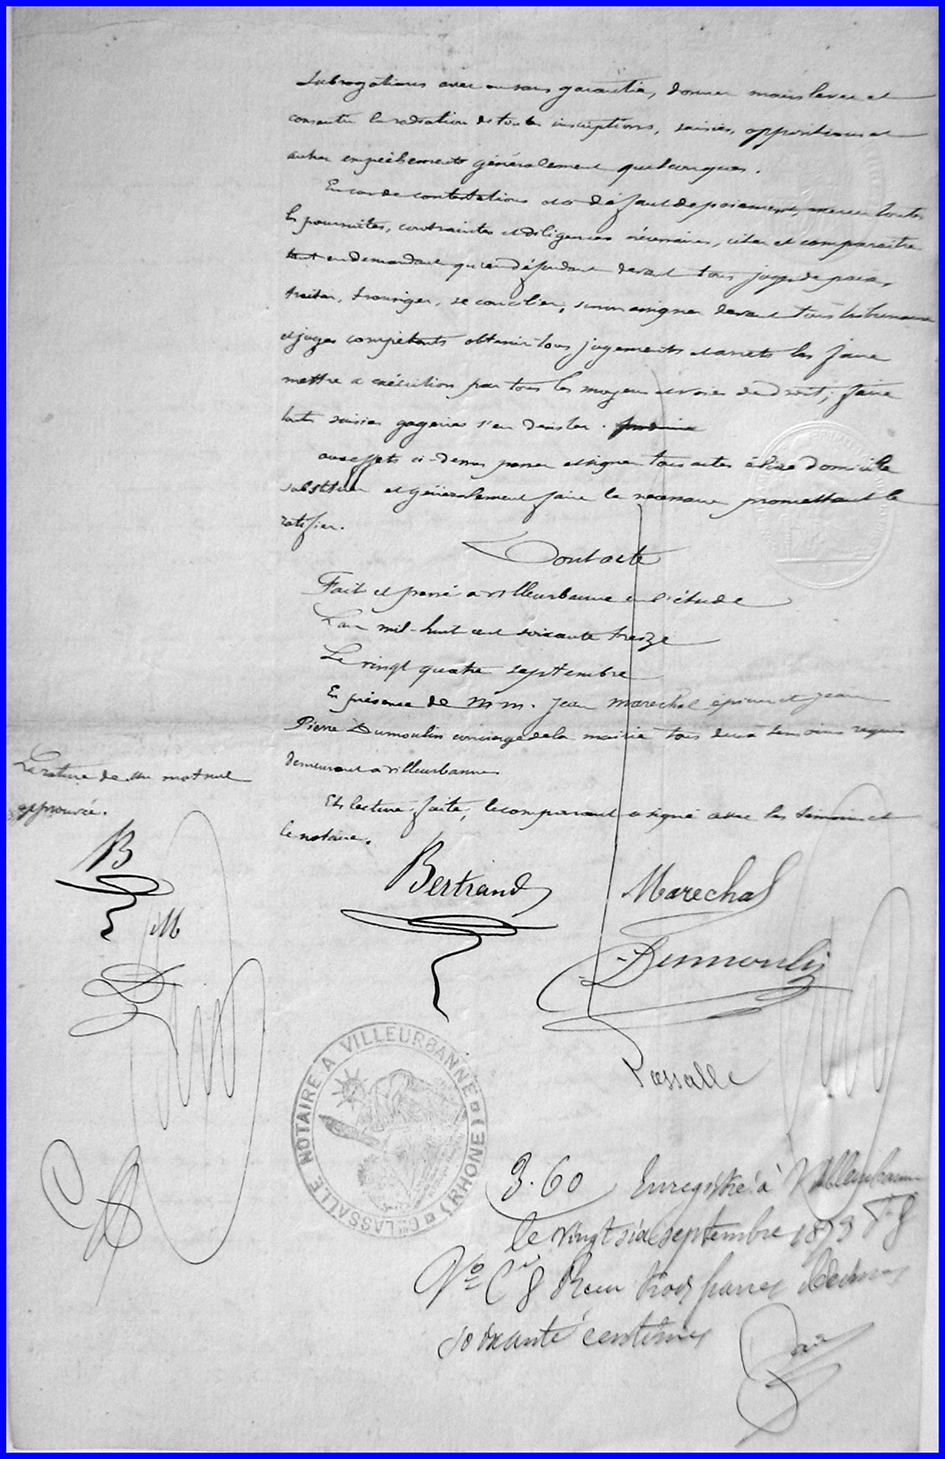 subrogations avec ou sans garantie, donner main levée et
consentir la radiation de toutes inscriptions, saisies, oppositions et
autres empêchements généralement quelconques.
En cas de contestations ou de défaut de paiement, exercer toutes
les poursuites, contraintes et diligences nécessaires, citer et comparaitre
tant en demandant qu'en défendant devant tous juges de paix,
traiter, transiger, se concilier, sinon assigner devant tous les tribunaux
et juges compétents obtenir tous jugements et arrets les faire
mettre a exécution par tous les moyens et voies de droit, faire
toutes saisies gageries s'en desister.
aux effets ci-dessus passer et signer tous actes élire domicile
substituer et généralement faire le necessaire promettant le
ratifier.
Dont acte
Fait et passé a villeurbanne en l'étude
L'an mil-huit cent soixante treize
Le vingt quatre septembre
En présence de MM. Jean Marechal épicier et Jean
Pierre Dumoulin concierge de la mairie tous deux temoins requis
demeurant a villeurbanne
Et lecture faite, le comparant a signé avec les témoins et
le notaire.
La rature de un mot nul
approuvée.
B
M
D
Bertrand
Marechal
Dumoulin
Lassalle
NOTAIRE A VILLEURBANNE (RHONE) Cte LASSALLE
3.60 Enregistré à Villeurbanne
le vingt six septembre 1873 f° 8
V° C° 8 Reçu trois francs décimes
soixante centimes